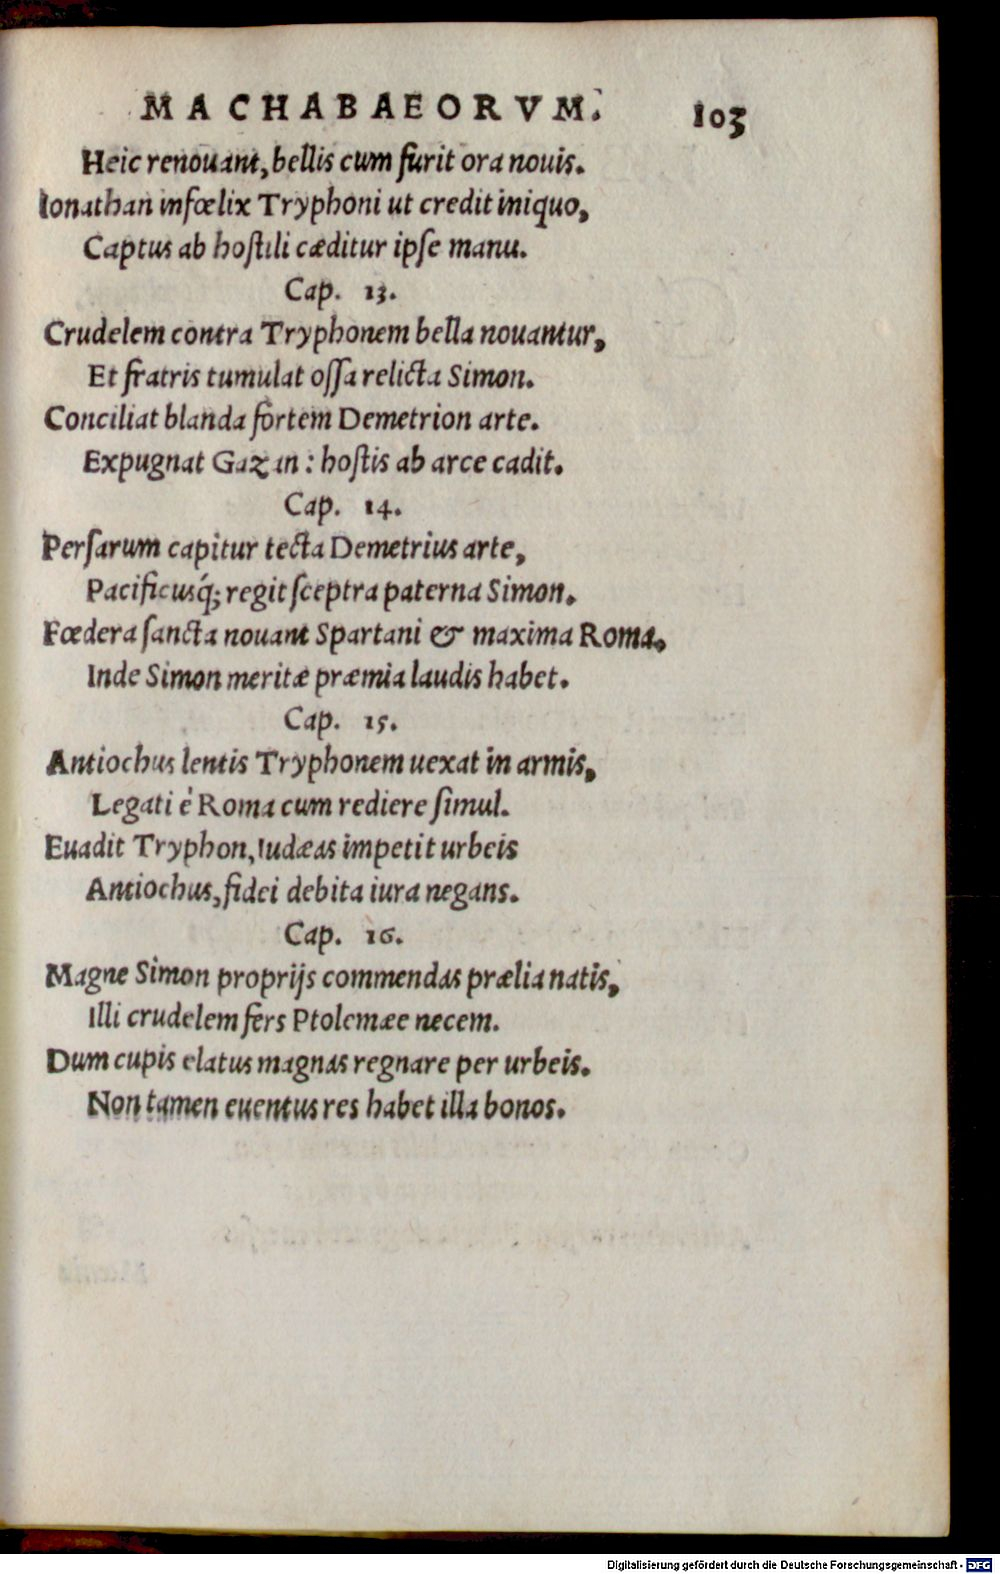 MACHABAEORVM. 103
Heic renouant, bellis cum furit ora nouis.
Ionathan infœlix Tryphoni ut credit iniquo,
Captus ab hostili cæditur ipſe manu.
Cap. 13.
Crudelem contra Tryphonem bella nouantur,
Et fratris tumulat oſſa relicta Simon.
Conciliat blanda fortem Demetrion arte.
Expugnat Gazan: hostis ab arce cadit.
Cap. 14.
Perſarum capitur tecta Demetrius arte,
Pacificusq́; regit ſceptra paterna Simon.
Fœdera ſancta nouant Spartani & maxima Roma.
Inde Simon meritæ præmia laudis habet.
Cap. 15.
Antiochus lentis Tryphonem uexat in armis,
Legati è Roma cum rediere ſimul.
Euadit Tryphon, Iudæas impetit urbeis
Antiochus, fidei debita iura negans.
Cap. 16.
Magne Simon proprijs commendas prælia natis,
Illi crudelem fers Ptolemæe necem.
Dum cupis elatus magnas regnare per urbeis.
Non tamen euentus res habet illa bonos.
Digitalisierung gefördert durch die Deutsche Forschungsgemeinschaft - DFG